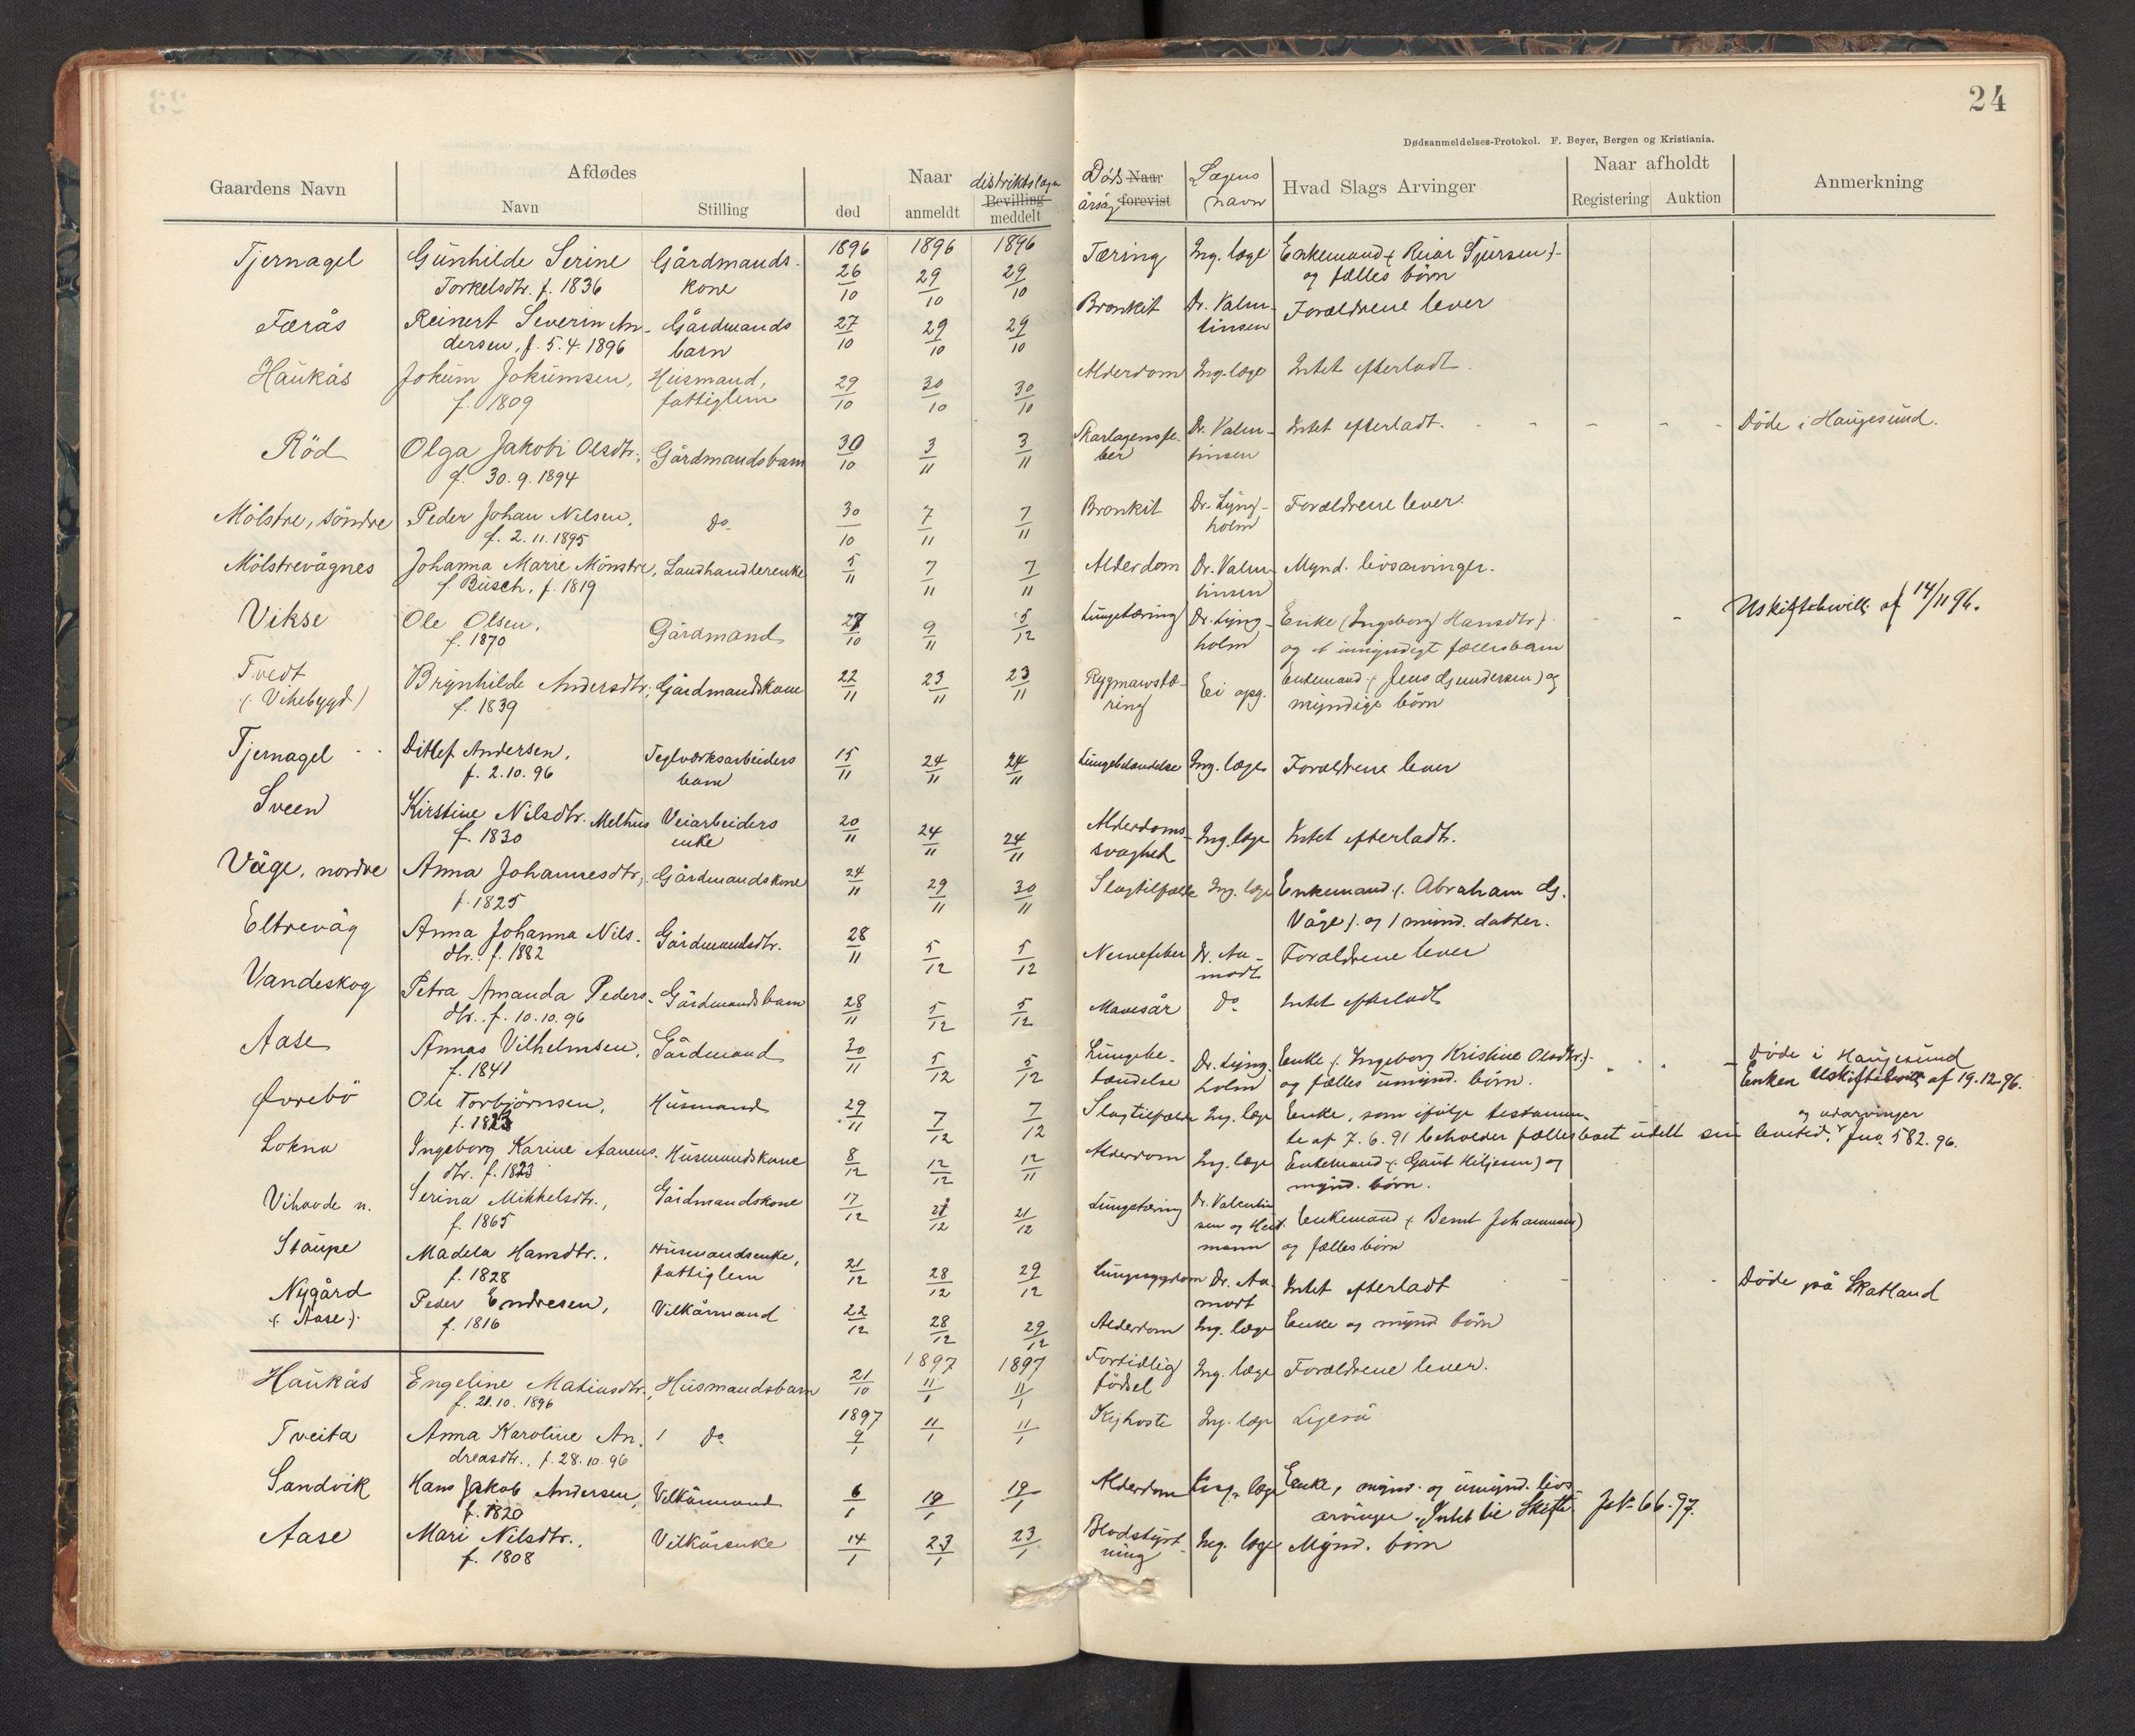 24
Dødsanmeldelses-Protokol. F. Beyer, Bergen og Kristiania.
Gaardens Navn Afdødes Naar distriktslægen Døds Naar Lægens Hvad Slags Arvinger Naar afholdt Anmerkning
Navn Stilling død anmeldt Bevilling meddelt årsag forevist navn Registering Auktion
1896 1896 1896
Tjernagel Gunhilde Serine Gårdmands- 26/10 29/10 29/10 Tæring Ing. læge Enkemand (Reiar Sjursen)
Torkelsdtr. f. 1836 kone og fælles börn
Færås Reinert Severin An- Gårdmands 27/10 29/10 29/10 Bronkit Dr. Valen- Forældrene lever
dersen, f. 5.4.1896 barn tinsen
Haukås Jokum Jokumsen, Husmand, 29/10 30/10 30/10 Alderdom Ing. læge Intet efterladt.
f. 1809 fattiglem
Röd Olga Jakobi Olsdtr., Gårdmandsbarn 30/10 3/11 3/11 Skarlagensfe- Dr. Valen- Intet efterladt. - - - - - Döde i Haugesund.
f. 30.9.1894 ber tinsen
Mölstre, söndre Peder Johan Nilsen, do 30/10 7/11 7/11 Bronkit Dr. Lyng- Forældrene lever.
f. 2.11.1895 holm
Mölstrevågnes Johanna Marie Mönstre, Landhandlerenke 5/11 7/11 7/11 Alderdom Dr. Valen- Mynd. livsarvinger.
f. Busch, f. 1819 tinsen
Vikse Ole Olsen, Gårdmand 27/10 9/11 5/12 Lungetæring Dr. Lyng- Enke (Ingeborg Hansdtr) - - Uskiftebevill. af 14/11 96.
f. 1870 holm og et umyndigt fællesbarn
Tvedt Brynhilde Andersdtr, Gårdmandskone 22/11 23/11 23/11 Rygmarvstæ- Ei opg. Enkemand (Jens Gundersen) og
(Vikebygd) f. 1839 ring myndige börn
Tjernagel - - Ditlef Andersen, Teglværksarbeiders 15/11 24/11 24/11 Lungebetændelse Ing. læge Forældrene lever
f. 2.10.96 barn
Sveen Kirstine Nilsdtr. Melhus Veiarbeiders 20/11 24/11 24/11 Alderdoms- Ing. læge Intet efterladt.
f. 1830 enke svaghed
Våge, nordre Anna Johannesdtr, Gårdmandskone 24/11 29/11 30/11 Slagtilfælde Ing. læge Enkemand (Abraham
f. 1825 Våge) og 1 mynd. datter.
Eltrevåg Anna Johanna Nils- Gårdmandsdtr. 28/11 5/12 5/12 Nervefeber Dr. Aa- Forældrene lever
dtr. f. 1882 modt
Vandeskog Petra Amanda Peders- Gårdmandsbarn 28/11 5/12 5/12 Mavesår do Intet efterladt
dtr., f. 10.10.96
Aase Annas Vilhelmsen, Gårdmand 30/11 5/12 5/12 Lungebe- Dr. Lyng- Enke (Ingeborg Kristine Olsdtr.) - - - Döde i Haugesund
f. 1841 tændelse holm og fælles umynd. börn. Enken Uskiftebevill. af 19.12.96.
Øvrebö Ole Torbjörnsen, Husmand 29/11 7/12 7/12 Slagtilfælde Ing. læge Enke, som ifölge testamen- og utarvinger
f. 1823 te af 7.6.91 beholder fællesboet udelt sin levetid, Jno. 582.96.
Lokna Ingeborg Karine Aanens- Husmandskone 8/12 12/12 12/11 Alderdom Ing. læge Enkemand (Gaut Kiljesen) og
dtr. f. 1823 mynd. börn.
Vihovde n. Serina Mikkelsdtr., Gårdmandskone 17/12 21/12 21/12 Lungetæring Dr. Valentin- Enkemand (Bernt Johannesen)
f. 1865 sen og Heit- mann og fælles börn
Staupe Madela Hansdtr., Husmandsenke, 21/12 28/12 29/12 Lungesygdom Dr. Aa- Intet efterladt - - - Döde på Skatland
f. 1828 fattiglem modt
Nygård Peder Endresen, Vilkårmand 22/12 28/12 29/12 Alderdom Ing. læge Enke og mynd. börn
(Aase) f. 1816
1897 1897
Haukås Engeline Matiasdtr., Husmandsbarn 21/10 11/1 11/1 Fortidlig Ing. læge Forældrene lever.
f. 21.10.1896 födsel
1897
Tveita Anna Karoline An- do 9/1 11/1 11/1 Kighoste Ing. læge Ligeså
dreasdtr., f. 28.10.96
Sandvik Hans Jakob Andersen, Vilkårmand 6/1 19/1 19/1 Alderdom Ing. læge Enke, mynd. og umynd. livs-
f. 1820 arvinger. Intet til Skifte. JN- 66.97.
Aase Mari Nilsdtr., Vilkårsenke 14/1 23/1 23/1 Blodstyrt- Ing. læge Mynd. börn
f. 1808 ning